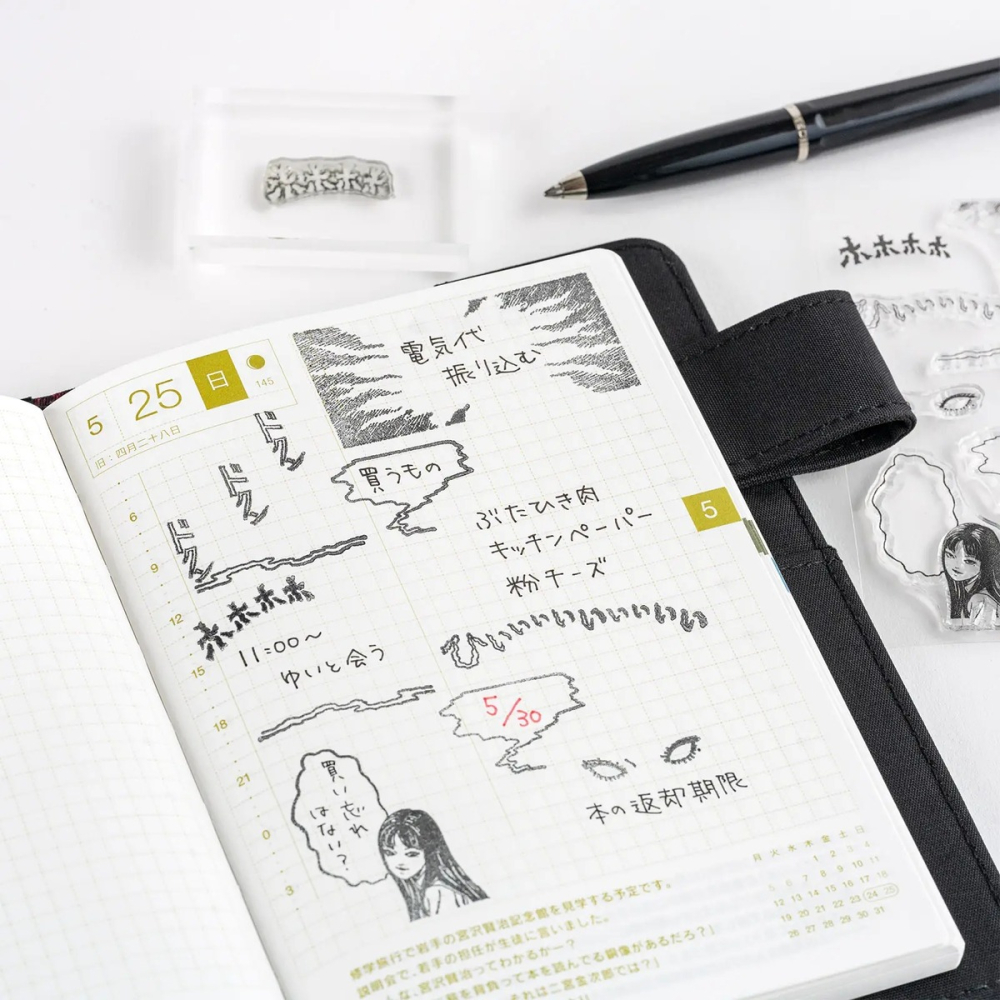 ホホホホ
ホホホホ
5 25 日
145
旧:四月二十八日
電気代
振り込む
ドクン
ドクン
ドクン
買うもの
ぶたひき肉
キッチンペーパー
粉チーズ
5
6
9
12
15
18
21
0
3
ホホホホ
11:00〜
ゆいと会う
ひいいいいいいいい
5/30
本の返却期限
買い忘れ
はない?
月 火 水 木 金 土 日
1 2 3 4
5 6 7 8 9 10 11
12 13 14 15 16 17 18
19 20 21 22 23 24 25
26 27 28 29 30 31
修学旅行で岩手の宮沢賢治記念館を見学する予定です。
説明会で、若手の担任が生徒に言いました。
宮沢賢治ってわかるかー?
を背負って本を読んでる銅像があるだろ?」
それは二宮金次郎では?」